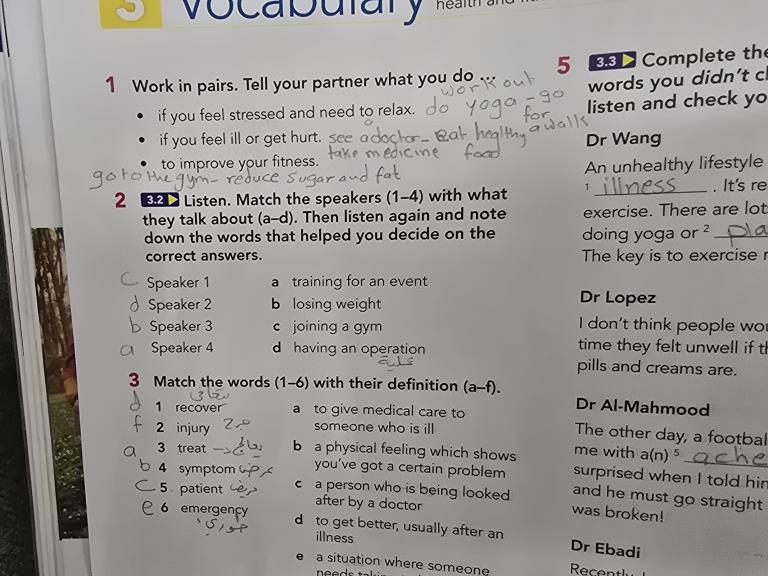 3 Vocabulary health and
1 Work in pairs. Tell your partner what you do ...
work out
• if you feel stressed and need to relax. do yoga - go for a walk
• if you feel ill or get hurt. see a doctor - eat healthy food
take medicine
• to improve your fitness.
go to the gym - reduce sugar and fat
2 3.2 Listen. Match the speakers (1–4) with what
they talk about (a–d). Then listen again and note
down the words that helped you decide on the
correct answers.
c Speaker 1 a training for an event
d Speaker 2 b losing weight
b Speaker 3 c joining a gym
a Speaker 4 d having an operation
عملية
3 Match the words (1–6) with their definition (a–f).
d 1 recover
f 2 injury
a 3 treat يعالج
b 4 symptom عرض
c 5 patient مريض
e 6 emergency
a to give medical care to
someone who is ill
b a physical feeling which shows
you've got a certain problem
c a person who is being looked
after by a doctor
d to get better, usually after an
illness
e a situation where someone
needs
5 3.3 Complete the
words you didn't
listen and check
Dr Wang
An unhealthy lifestyle
1 illness . It's
exercise. There are
doing yoga or 2
The key is to exercise
Dr Lopez
I don't think people
time they felt unwell if
pills and creams are.
Dr Al-Mahmood
The other day, a
me with a(n) 5 ache
surprised when I told
and he must go straight
was broken!
Dr Ebadi
Recently